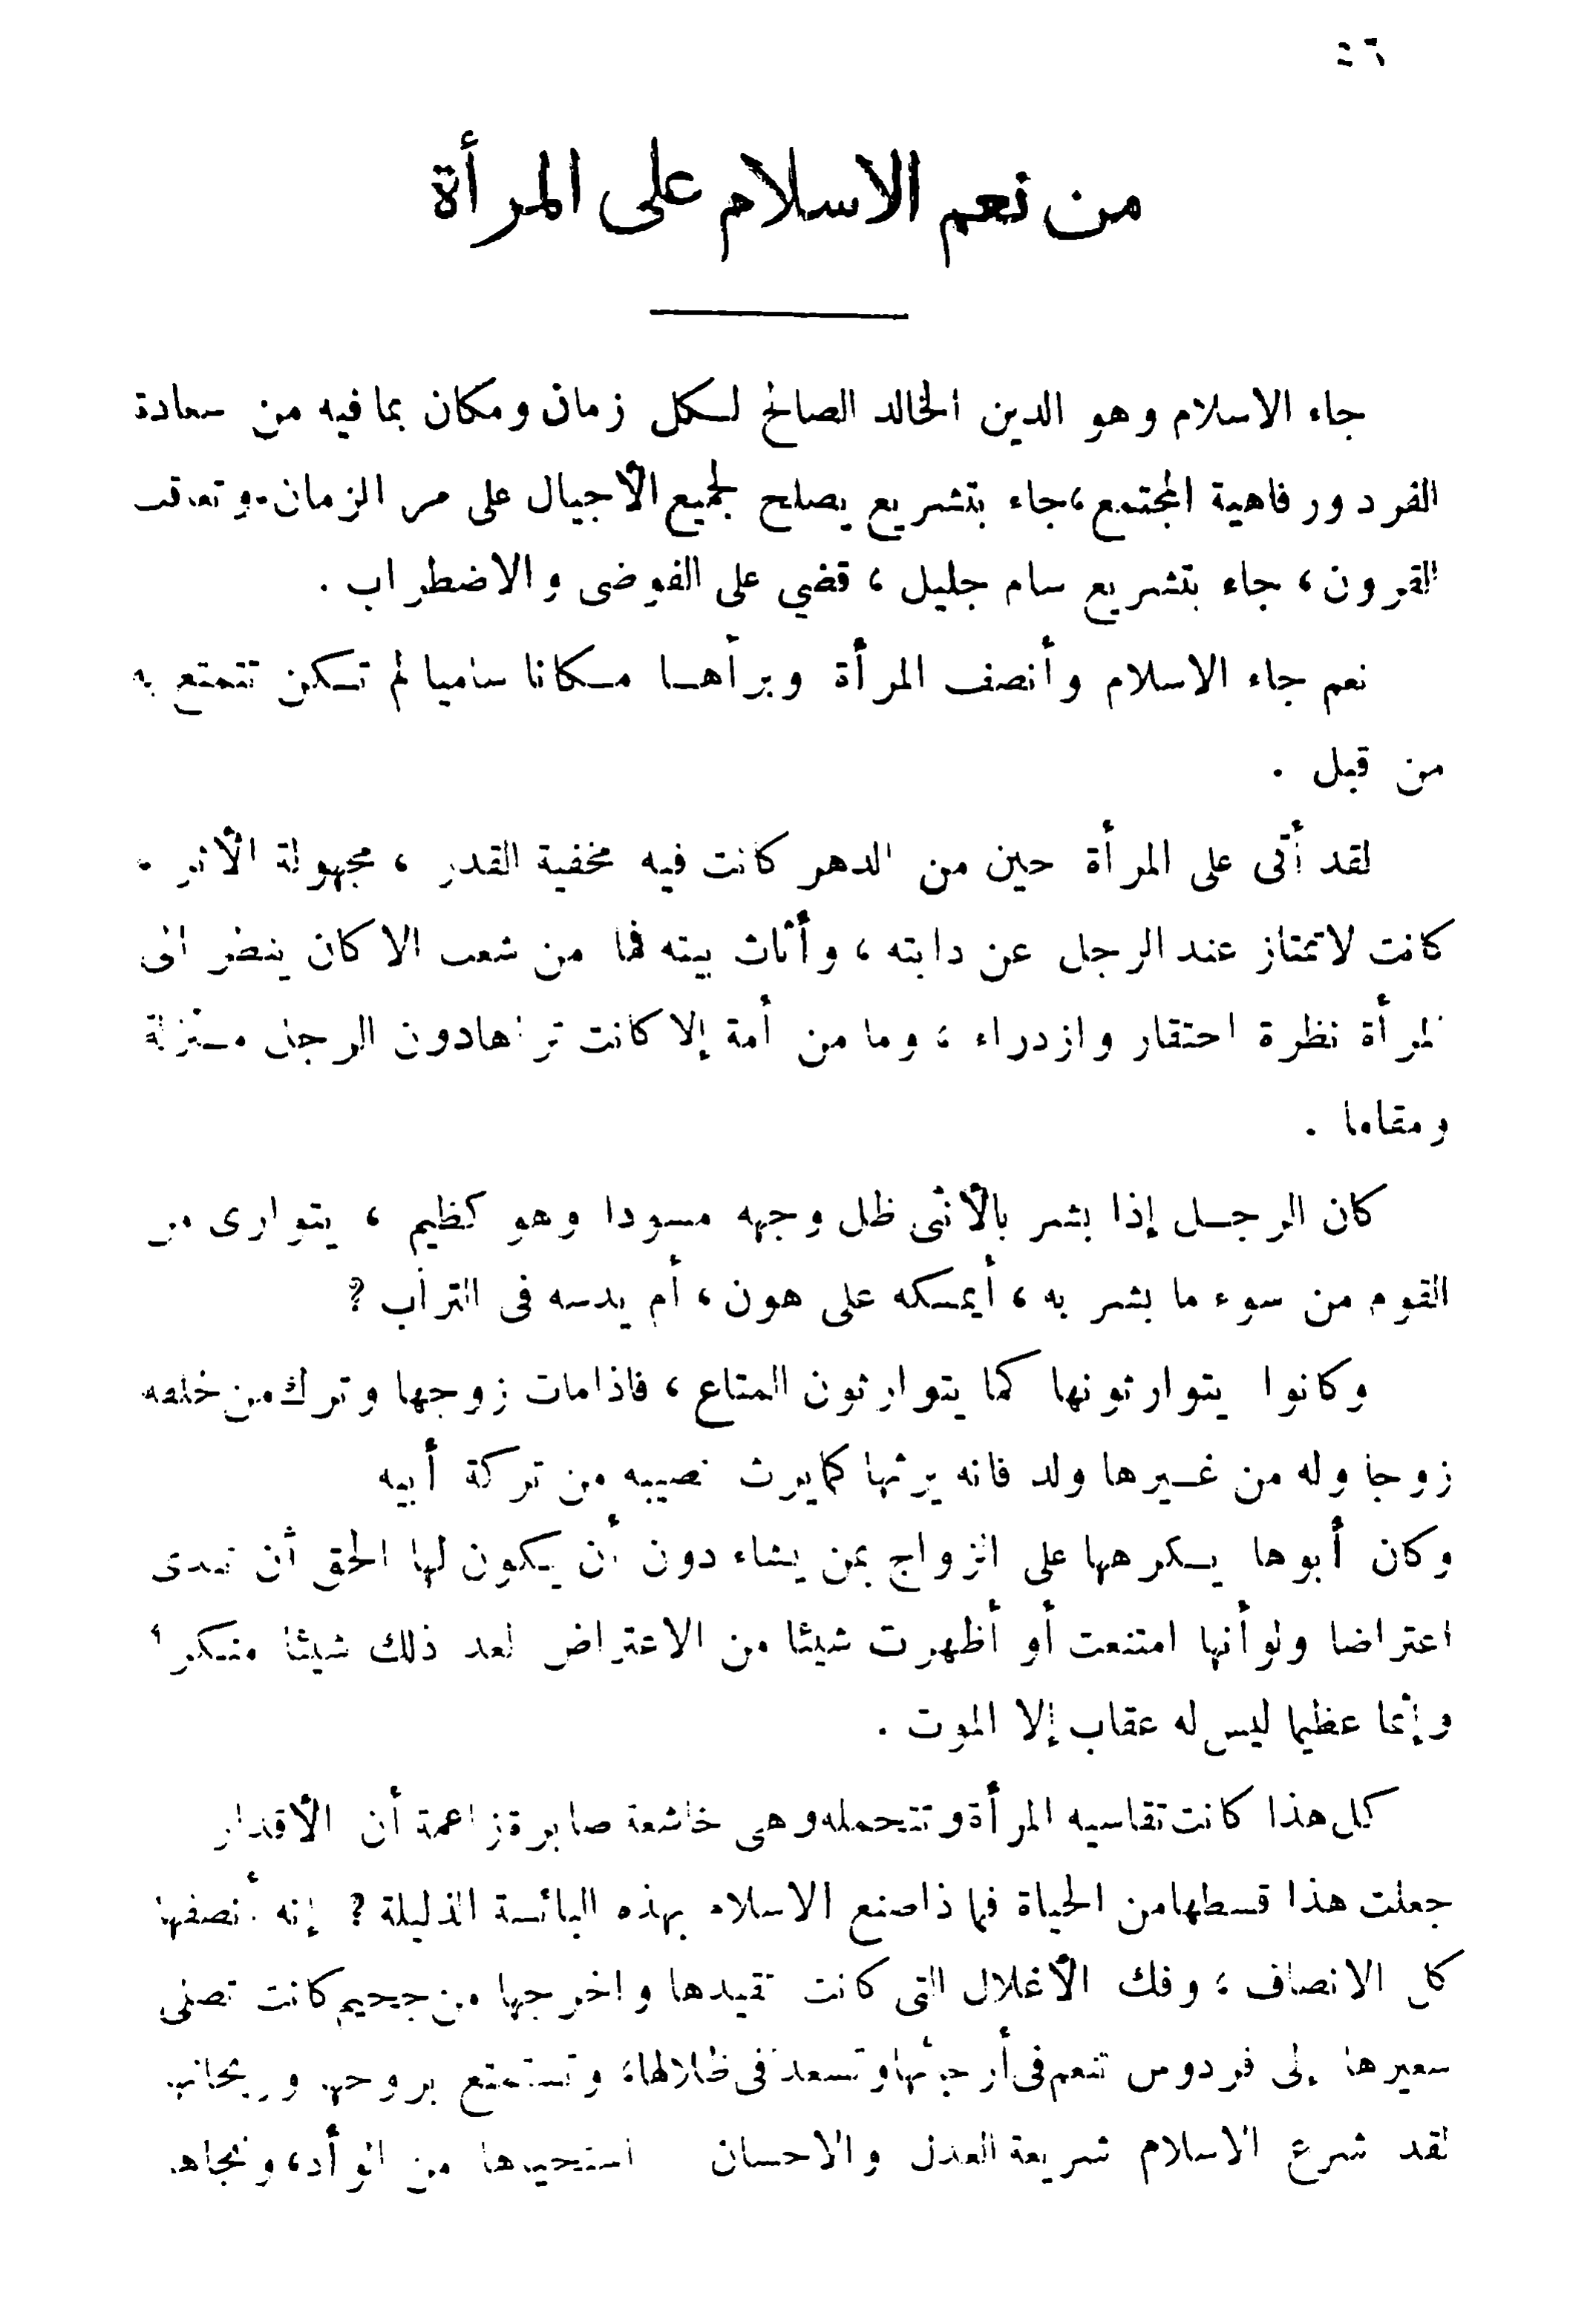 من نعم الاسلام على المرأة
جاء الاسلام وهو الدين الخالد الصالح لكل زمان ومكان بما فيه من سعادة
الفرد ورفاهية المجتمع، جاء بتشريع يصلح لجميع الأجيال على مر الزمان وتعاقب
القرون، جاء بتشريع سام جليل، قضي على الفوضى والاضطراب .
نعم جاء الاسلام وأنصف المرأة وبرأها مكانا ساميا لم تكن تتمتع به
من قبل .
لقد أتى على المرأة حين من الدهر كانت فيه مخفية القدر، مجهولة الأثر .
كانت لا تمتاز عند الرجل عن دابته، وأثاث بيته فما من شعب الا كان ينظر الى
المرأة نظرة احتقار وازدراء، وما من أمة إلا كانت تراها دون الرجل منزلة
ومقاما .
كان الرجل إذا بشر بالأنثى ظل وجهه مسودا وهو كظيم، يتوارى من
القوم من سوء ما بشر به، أيمسكه على هون، أم يدسه فى التراب ؟
وكانوا يتوارثونها كما يتوارثون المتاع، فاذا مات زوجها وترك من خلفه
زوجا وله من غيرها ولد فانه يرثها كما يرث نصيبه من تركة أبيه
وكان أبوها يكرهها على الزواج بمن يشاء دون أن يكون لها الحق أن تبدى
اعتراضا ولو أنها امتنعت أو أظهرت شيئا من الاعتراض لعد ذلك شيئا منكرا
وإثما عظيما ليس له عقاب إلا الموت .
كل هذا كانت تقاسيه المرأة وتتحمله وهى خاشعة صابرة زاعمة أن الأقدار
جعلت هذا قسطها من الحياة فماذا صنع الاسلام بهذه البائسة الذليلة ؟ إنه أنصفها
كل الانصاف، وفك الأغلال التى كانت تقيدها واخرجها من جحيم كانت تصلى
سعيرها إلى فردوس تنعم فى أرجائها وتسعد فى ظلالها، وتستمتع بروحها وريحانها
لقد شرع الاسلام شريعة العدل والاحسان استحياها من الوأد، ونجاها